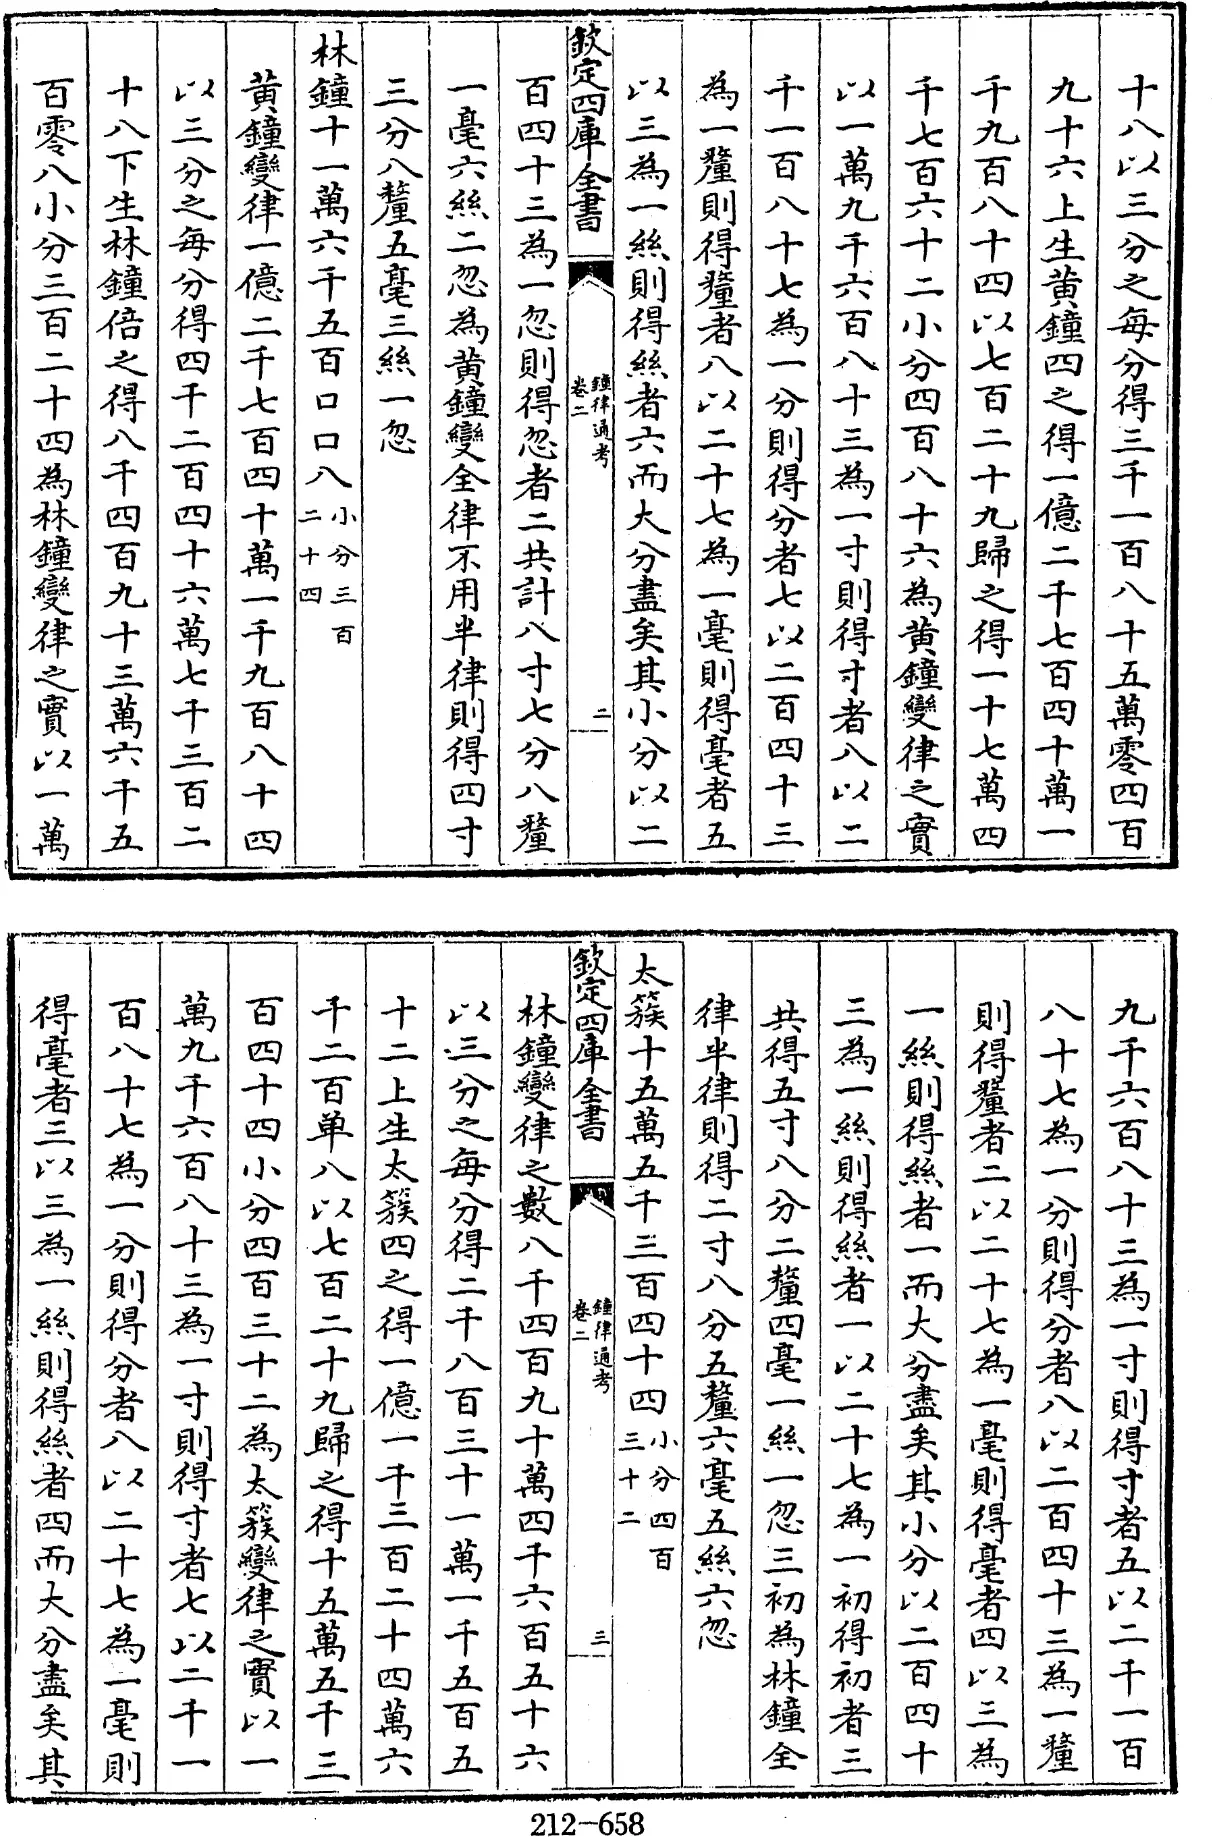 十八以三分之每分得三千一百八十五萬零四百
九十六上生黃鐘四之得一億二千七百四十萬一
千九百八十四以七百二十九歸之得一十七萬四
千七百六十二小分四百八十六為黃鐘變律之實
以一萬九千六百八十三為一寸則得寸者八以二
千一百八十七為一分則得分者七以二百四十三
為一釐則得釐者八以二十七為一毫則得毫者五
以三為一絲則得絲者六而大分盡矣其小分以二
欽定四庫全書
鐘律通考
卷二
二
百四十三為一忽則得忽者二共計八寸七分八釐
一毫六絲二忽為黃鐘變全律不用半律則得四寸
三分八釐五毫三絲一忽
林鐘十一萬六千五百口口八小分三百二十四
黃鐘變律一億二千七百四十萬一千九百八十四
以三分之每分得四千二百四十六萬七千三百二
十八下生林鐘倍之得八千四百九十三萬六千五
百零八小分三百二十四為林鐘變律之實以一萬
九千六百八十三為一寸則得寸者五以二千一百
八十七為一分則得分者八以二百四十三為一釐
則得釐者二以二十七為一毫則得毫者四以三為
一絲則得絲者一而大分盡矣其小分以二百四十
三為一絲則得絲者一以二十七為一初得初者三
共得五寸八分二釐四毫一絲一忽三初為林鐘全
律半律則得二寸八分五釐六毫五絲六忽
太簇十五萬五千三百四十四小分四百三十二
欽定四庫全書
鐘律通考
卷二
三
林鐘變律之數八千四百九十萬四千六百五十六
以三分之每分得二千八百三十一萬一千五百五
十二上生太簇四之得一億一千三百二十四萬六
千二百单八以七百二十九歸之得十五萬五千三
百四十四小分四百三十二為太簇變律之實以一
萬九千六百八十三為一寸則得寸者七以二千一
百八十七為一分則得分者八以二十七為一毫則
得毫者三以三為一絲則得絲者四而大分盡矣其
212-658